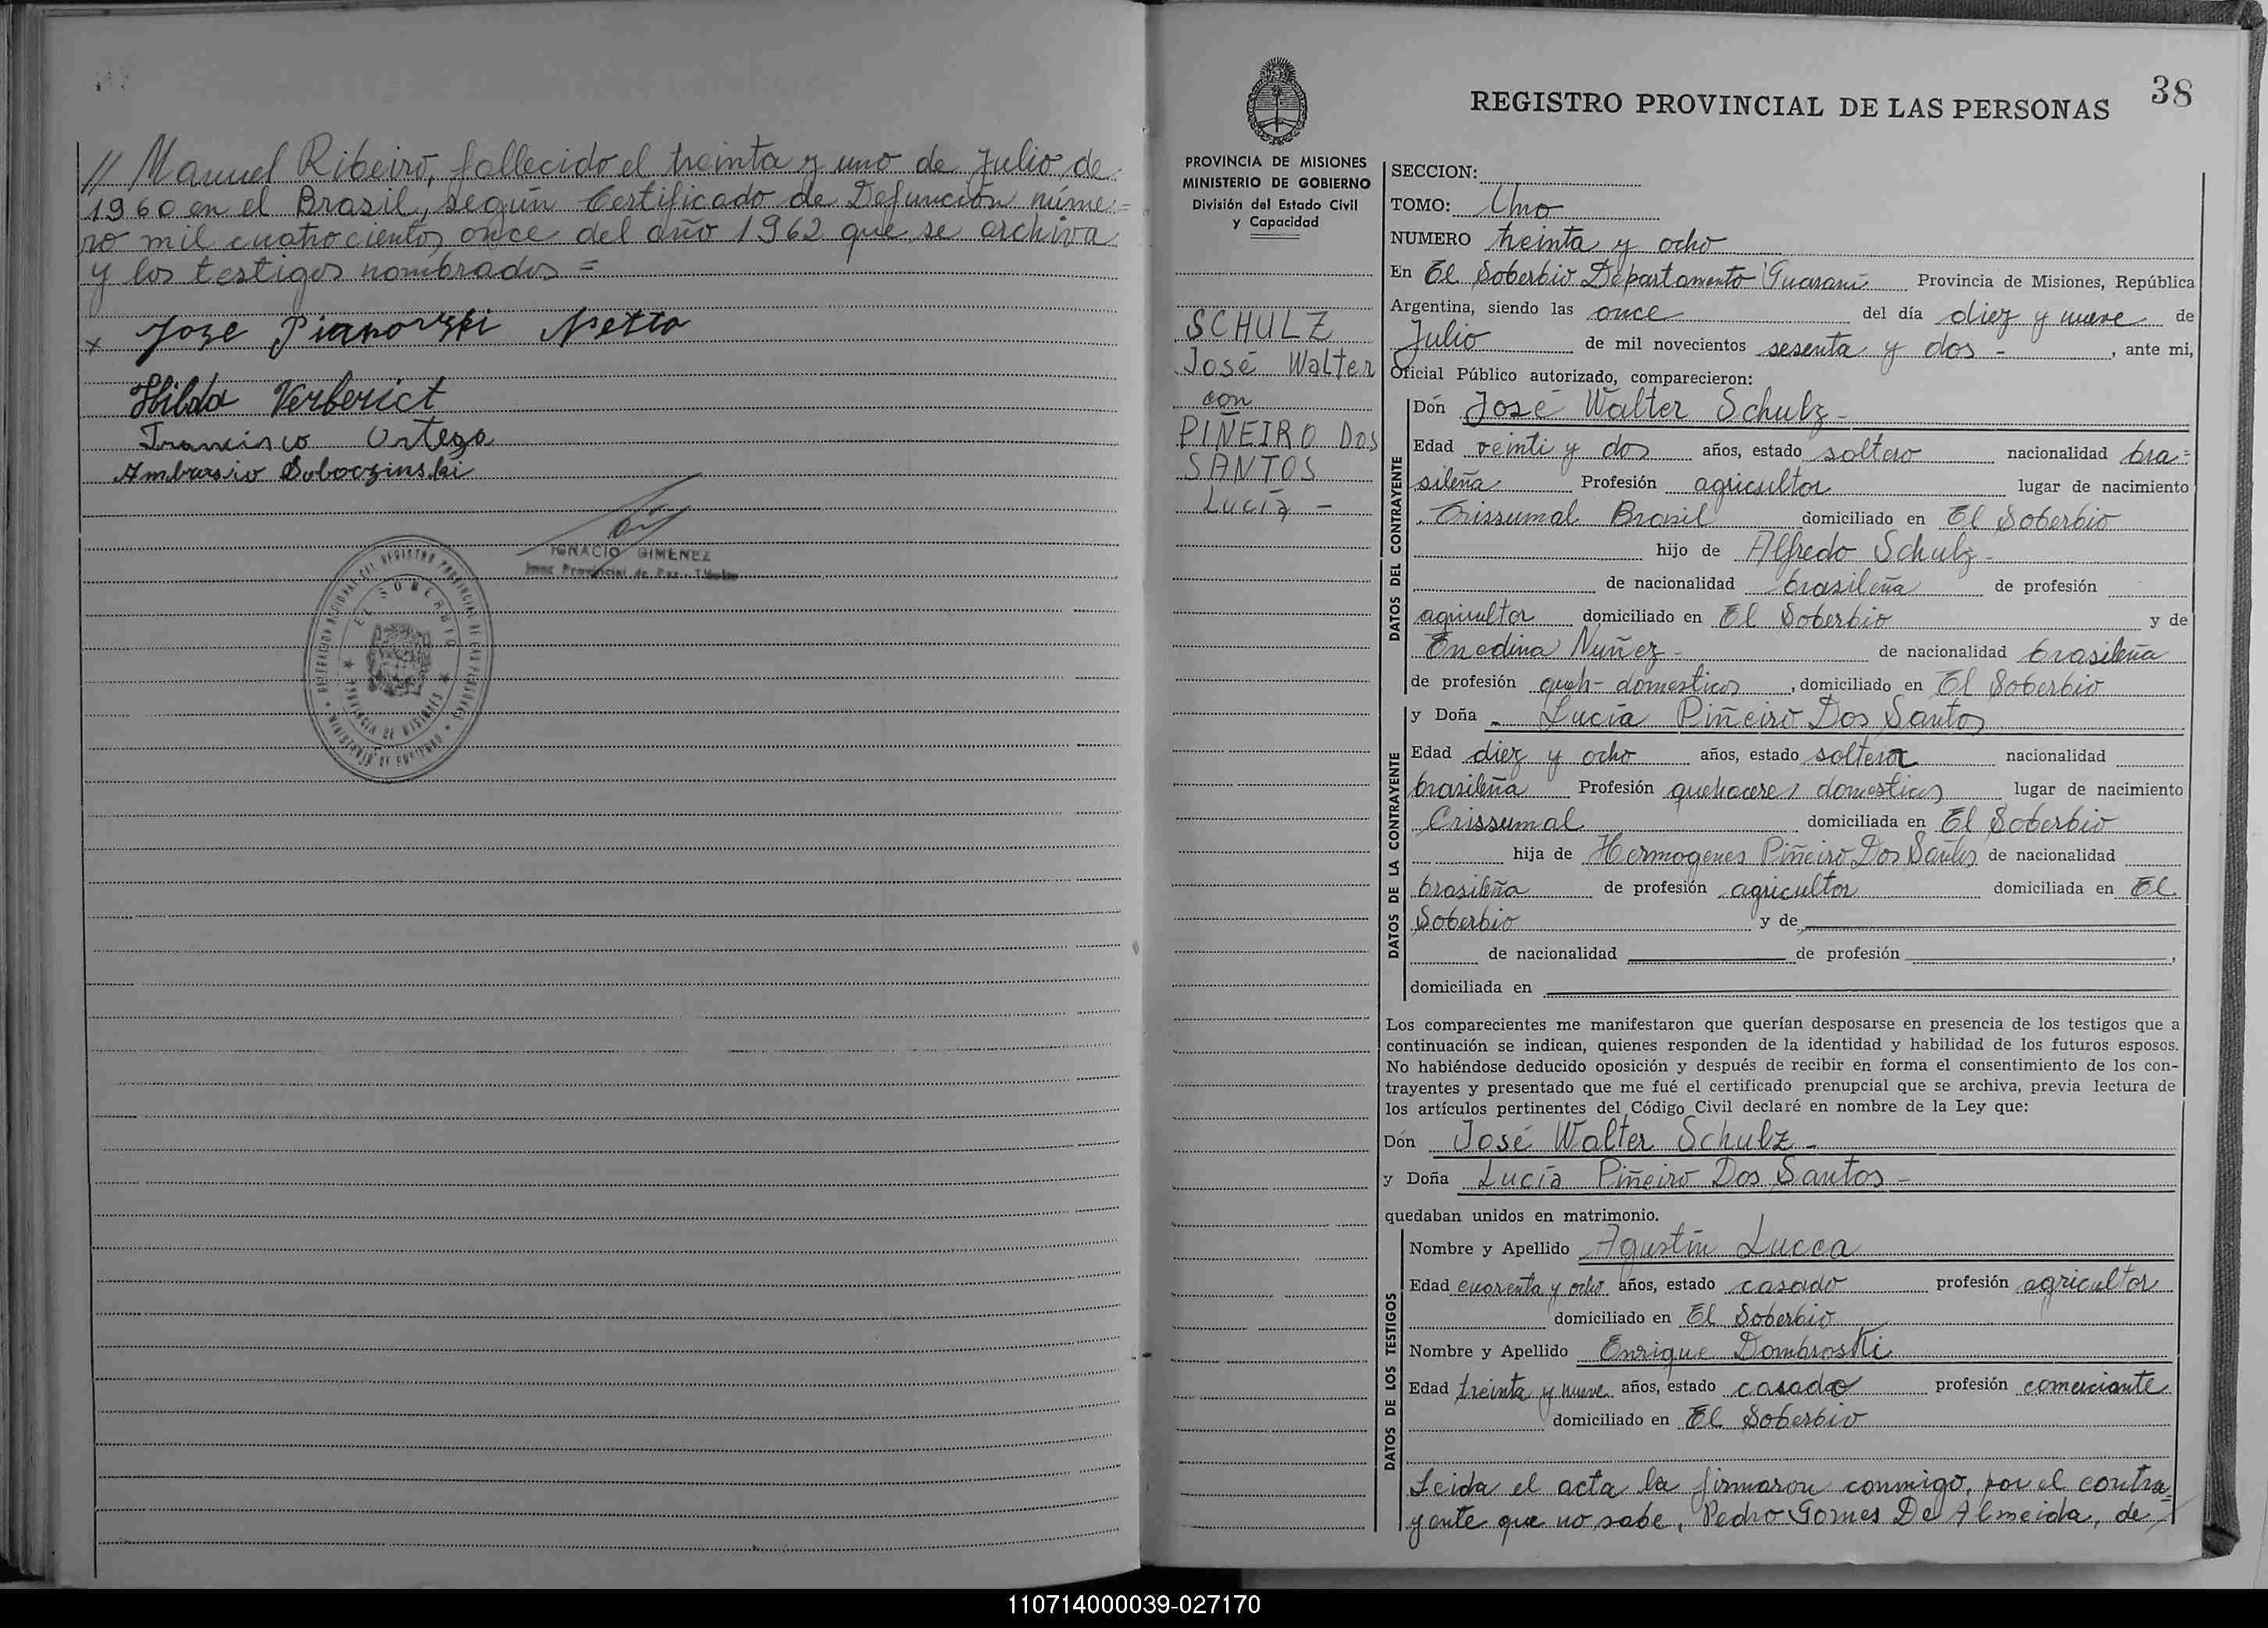 // Manuel Ribeiro, fallecido el treinta y uno de Julio de
1960 en el Brasil, según Certificado de Defunción núme=
ro mil cuatrocientos once del año 1962 que se archiva
y los testigos nombrados =
x Joze Pianovski Netto
Hilda Verberict
Francisco Ortega
Ambrosio Soboczinski
IGNACIO GIMENEZ
Juez Provincial de Paz
DELEGACION REGISTRO PROVINCIAL DE LAS PERSONAS
EL SOBERBIO
PROVINCIA DE MISIONES
MINISTERIO DE GOBIERNO
38
REGISTRO PROVINCIAL DE LAS PERSONAS
PROVINCIA DE MISIONES
MINISTERIO DE GOBIERNO
División del Estado Civil
y Capacidad
SCHULZ
José Walter
con
PIÑEIRO DOS
SANTOS
Lucía -
SECCION:
TOMO: Uno
NUMERO treinta y ocho
En El Soberbio Departamento Guaraní Provincia de Misiones, República
Argentina, siendo las once del día diez y nueve de
Julio de mil novecientos sesenta y dos - , ante mi,
Oficial Público autorizado, comparecieron:
DATOS DEL CONTRAYENTE
Don José Walter Schulz -
Edad veinti y dos años, estado soltero nacionalidad bra=
sileña Profesión agricultor lugar de nacimiento
Crissumal Brasil domiciliado en El Soberbio
hijo de Alfredo Schulz -
de nacionalidad brasileña de profesión
agricultor domiciliado en El Soberbio y de
Enedina Nuñez - de nacionalidad brasileña
de profesión queh- domesticos , domiciliado en El Soberbio
DATOS DE LA CONTRAYENTE
y Doña - Lucía Piñeiro Dos Santos
Edad diez y ocho años, estado soltera nacionalidad
brasileña Profesión quehaceres domesticos lugar de nacimiento
Crissumal domiciliada en El Soberbio
hija de Hermogenes Piñeiro Dos Santos de nacionalidad
brasileña de profesión agricultor domiciliada en El
Soberbio y de
de nacionalidad de profesión ,
domiciliada en
Los comparecientes me manifestaron que querían desposarse en presencia de los testigos que a
continuación se indican, quienes responden de la identidad y habilidad de los futuros esposos.
No habiéndose deducido oposición y después de recibir en forma el consentimiento de los con-
trayentes y presentado que me fué el certificado prenupcial que se archiva, previa lectura de
los artículos pertinentes del Código Civil declaré en nombre de la Ley que:
Don José Walter Schulz -
y Doña Lucía Piñeiro Dos Santos -
quedaban unidos en matrimonio.
DATOS DE LOS TESTIGOS
Nombre y Apellido Agustín Lucca
Edad cuarenta y ocho años, estado casado profesión agricultor
domiciliado en El Soberbio
Nombre y Apellido Enrique Dombroski
Edad treinta y nueve años, estado casado profesión comerciante
domiciliado en El Soberbio
Leida el acta la firmaron conmigo, por el contra=
yente que no sabe, Pedro Gomes De Almeida, de //
110714000039-027170